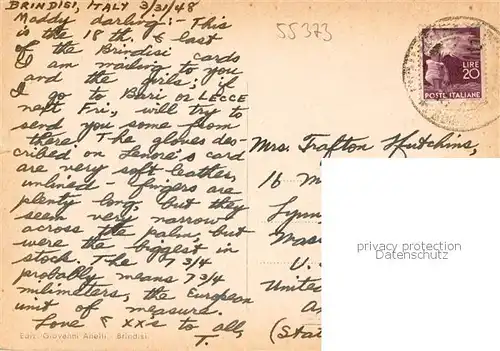 BRINDISI, ITALY 3/31/48
Maddy darling:- This
is the 18th. & last
of the Brindisi cards
I am mailing to you
and the girls; if
I go to Bari or LECCE
next Fri, will try to
send you some from
there. The gloves des-
cribed on Lenore's card
are very soft leather,
unlined - fingers are
plenty long but they
seem very narrow
across the palm, but
were the biggest in
stock. The 7 3/4
probably means 7 3/4
milimeters, the European
unit of measure.
Love & xxs to all,
T.
Ediz. Giovanni Abelli - Brindisi
55373
LIRE
20
POSTE ITALIANE
Mrs. Trafton Hutchins,
16 M
Lynn
Mass
U.
United
Am
(Stat
privacy protection
Datenschutz